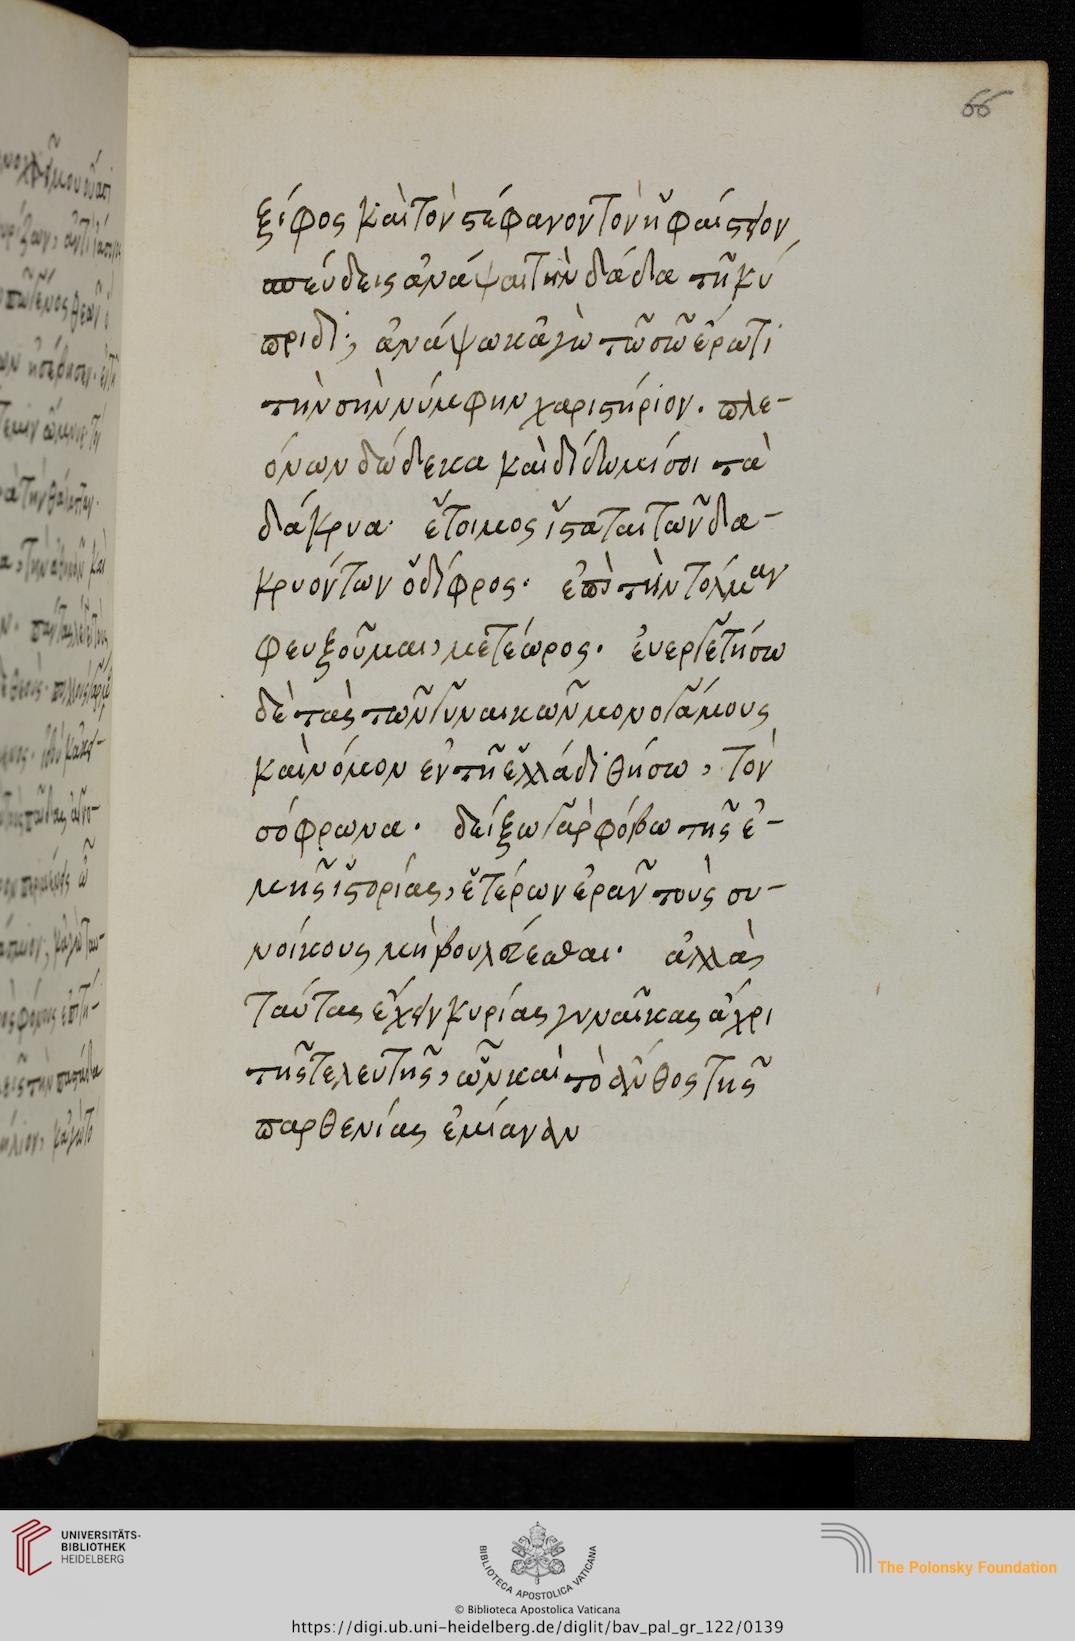 66
ξίφος καὶ τὸν στέφανον τὸν ἡφαίστειον
σπεύδεις ἀνάψαι τὴν δᾶδα τῆ κύ
πριδι, ἀνάψω κἀγὼ τῶ σῶ ἔρωτι
τὴν σὴν νύμφην χαριστήριον. πλε-
όνων δώδεκα καὶ δίδωμί σοι τὰ
δάκρυα· ἕτοιμος ἵσταται τῶν δα-
κρυόντων ὁ δίφρος· ἐπὶ τὴν τόλμαν
φευξοῦμαι, μετέωρος· ἐυεργετήσω
δὲ τὰς τῶν γυναικῶν μονογάμους
καὶ νόμον ἐν τῆ ἑλλάδι θήσω, τὸν
σόφρωνα· δείξω γὰρ φόβω τῆς ἐ-
μῆς ἱστορίας, ἑτέρων ἐρᾶν τοὺς συ-
νοίκους μὴ βουλεύεσθαι· ἀλλὰ
ταύτας ἔχειν κυρίας γυναῖκας ἄχρι
τῆς τελευτῆς, ὧν καὶ τὸ ἄνθος τῆς
παρθενίας ἐμίαναν
UNIVERSITÄTS-
BIBLIOTHEK
HEIDELBERG
BIBLIOTECA APOSTOLICA VATICANA
The Polonsky Foundation
© Biblioteca Apostolica Vaticana
https://digi.ub.uni-heidelberg.de/diglit/bav_pal_gr_122/0139